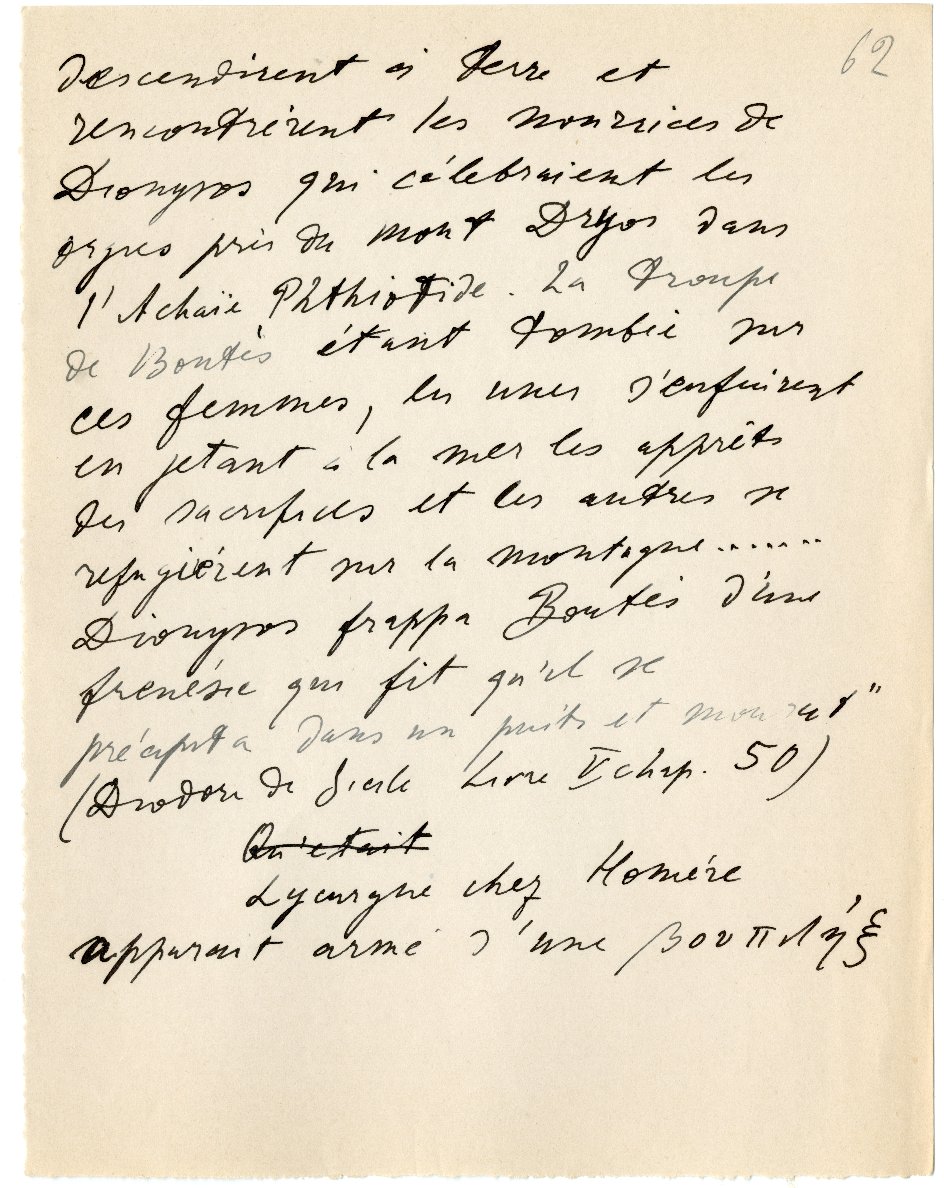 62
descendirent à terre et
rencontrèrent les nourrices de
Dionysos qui célébraient les
orgies près du mont Dryos dans
l'Achaïe Phthiotide. La troupe
de Boutès étant tombée sur
ces femmes, les unes s'enfuirent
en jetant à la mer les apprêts
des sacrifices et les autres se
refugièrent sur la montagne........
Dionysos frappa Boutès d'une
frénésie qui fit qu'il se
précipita dans un puits et mourut"
(Diodore de Sicile Livre V chap. 50)
Qu'etait
Lycurgue chez Homère
apparait armé d'une βουπλήξ